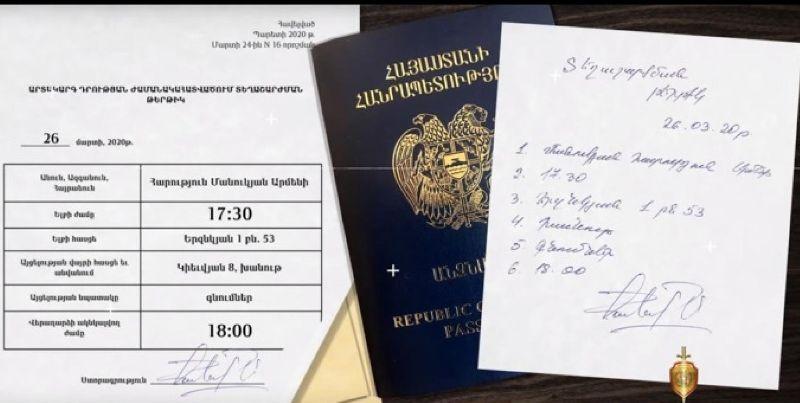 Հավելված
Պարետի 2020 թ.
Մարտի 24-ին N 16 որոշման
ԱՐՏԱԿԱՐԳ ԴՐՈՒԹՅԱՆ ԺԱՄԱՆԱԿԱՀԱՏՎԱԾՈՒՄ ՏԵՂԱՇԱՐԺՄԱՆ
ԹԵՐԹԻԿ
26 մարտի, 2020թ.
Անուն, Ազգանուն,
Հայրանուն
Հարություն Մանուկյան Արմենի
Ելքի ժամը
17:30
Ելքի հասցե
Երզնկյան 1 բն. 53
Այցելության վայրի հասցե եւ
անվանում
Կիեւվյան 8, խանութ
Այցելության նպատակը
գնումներ
Վերադարձի ակնկալվող
ժամը
18:00
Ստորագրություն
ՀԱՅԱՍՏԱՆԻ
ՀԱՆՐԱՊԵՏՈՒԹՅՈՒ
ԱՆՁՆԱ
REPUBLIC O
PASS
Տեղաշարժման
թերթիկ
26.03.20թ.
1. Մանուկյան Հարություն
2. 17.30
3. Երզնկյան 1 բն. 53
4. Խանութ
5. Գնումներ
6. 18.00